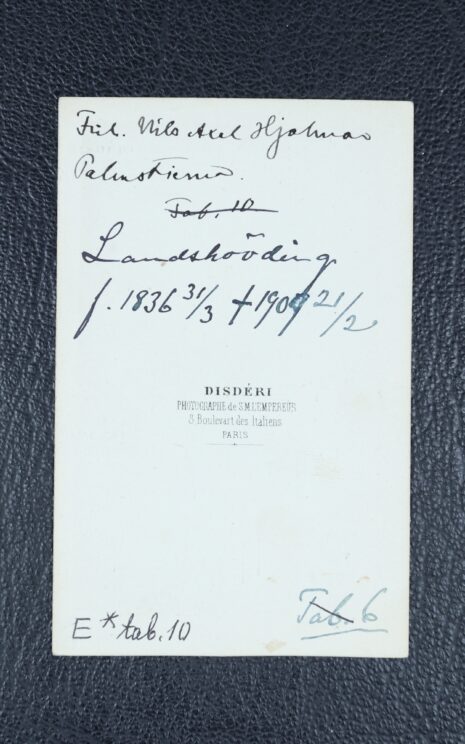 Frih. Nils Axel Hjalmar
Palmstierna.
Tab. 10
Landshövding
f. 1836 31/3 † 1909 21/2
DISDÉRI
PHOTOGRAPHE de S.M.L'EMPEREUR
8, Boulevart des Italiens
PARIS
E * tab. 10
Tab. 6